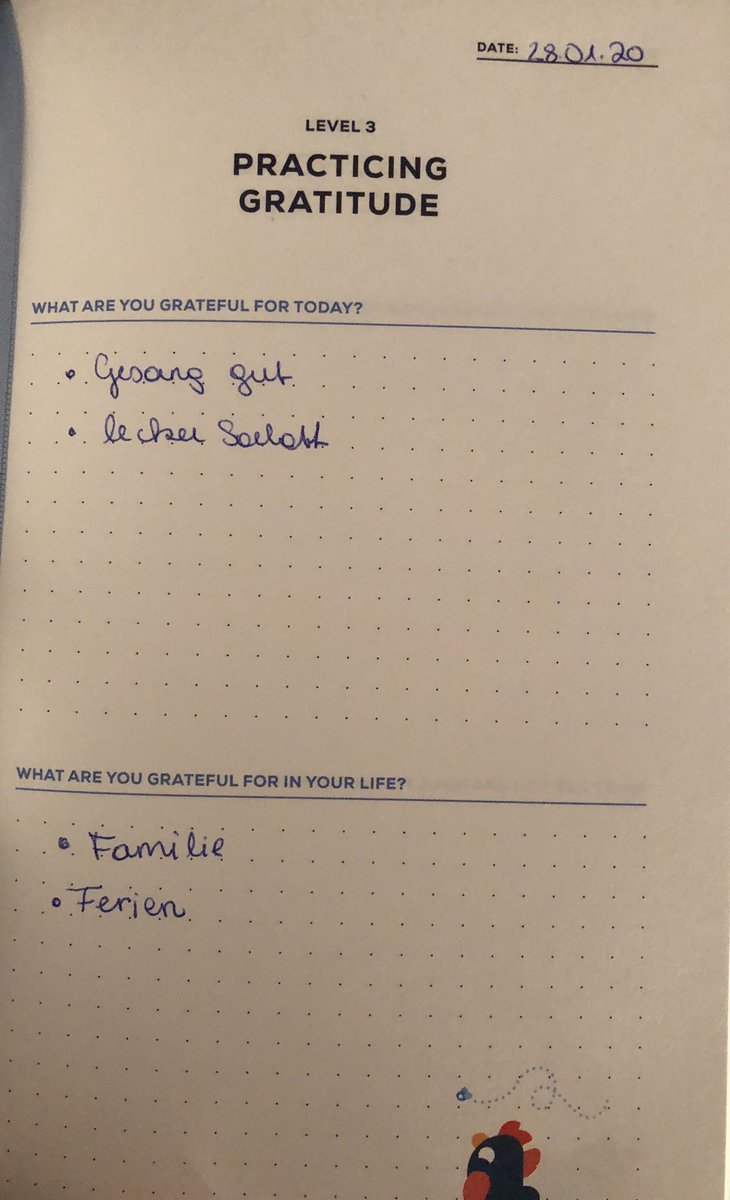 DATE: 28.01.20
LEVEL 3
PRACTICING
GRATITUDE
WHAT ARE YOU GRATEFUL FOR TODAY?
• Gesang gut
• lecker Salat
WHAT ARE YOU GRATEFUL FOR IN YOUR LIFE?
• Familie
• Ferien